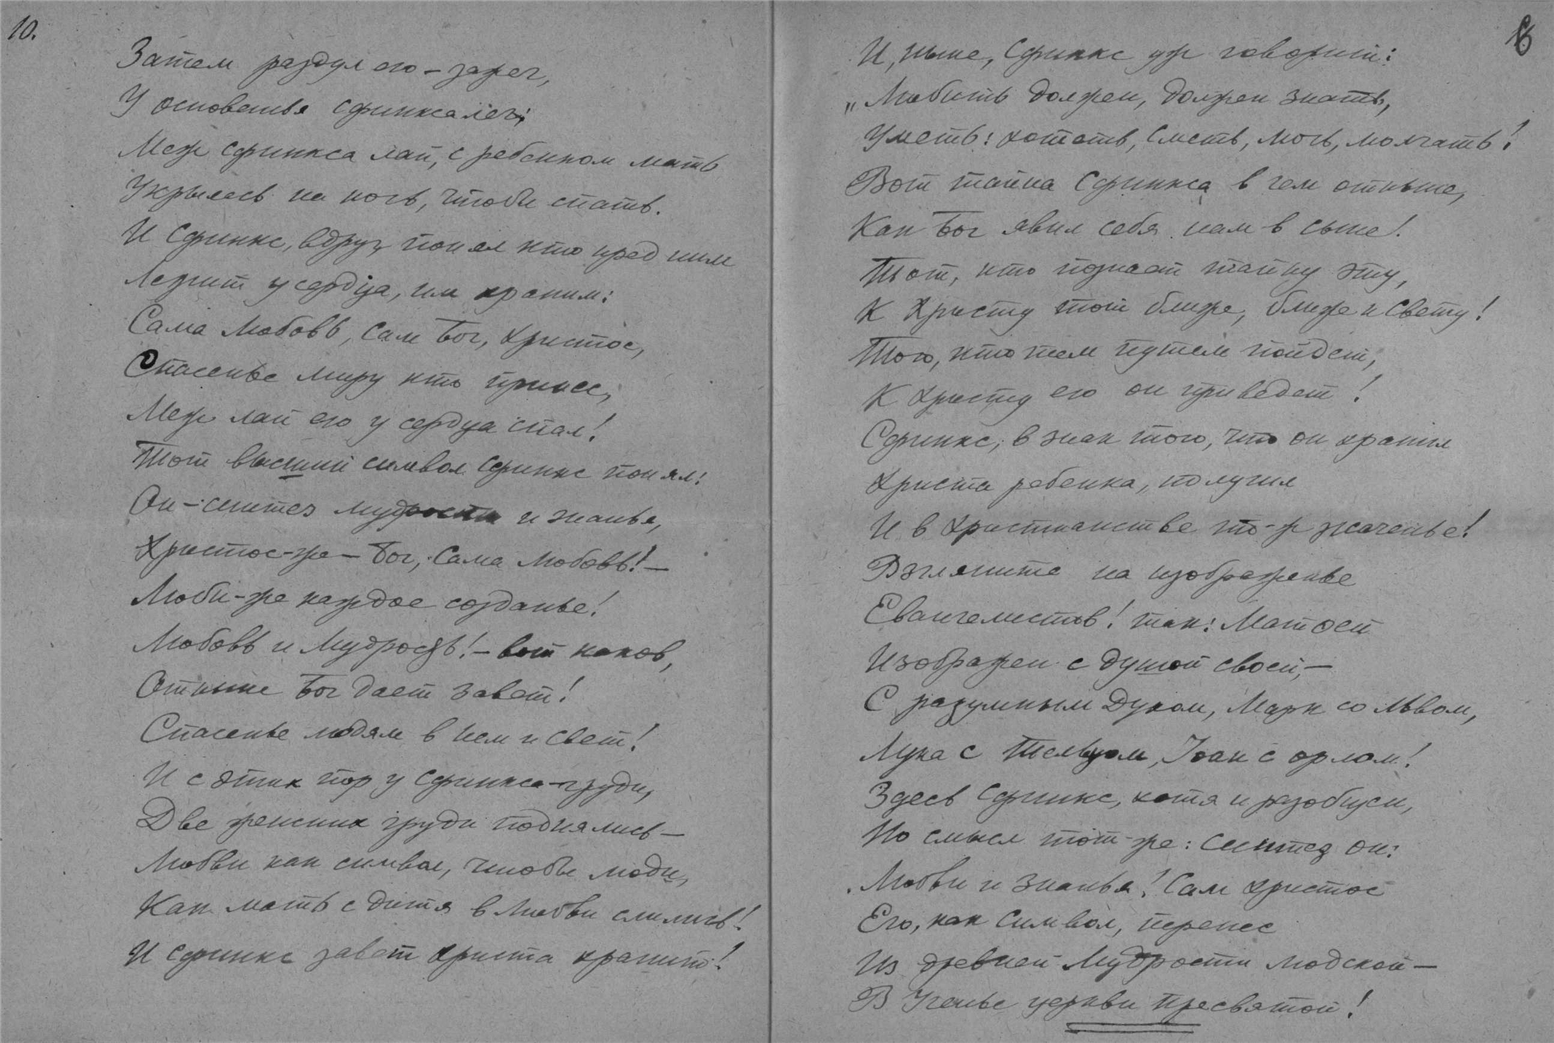 10.
Затем раздул его – зажег,
У основенья сфинкса лег;
Меж сфинкса лап, с ребенком мать
Укрылась на ночь, чтобы спать.
И Сфинкс, вдруг, понял кто пред ним
Лежит у сердца, им храним:
Сама Любовь, сам Бог, Христос,
Спасенье миру кто принес,
Меж лап его у сердца спал!
Тот высший символ Сфинкс понял:
Он – синтез мудрости и знанья,
Христос-же – Бог, Сама Любовь! –
Люби-же каждое созданье!
Любовь и Мудрость! – вот каков,
Отныне Бог дает завет!
Спасенье людям в нем и свет!
И с этих пор у Сфинкса-груди,
Две женских груди поднялись –
Любви как символ, чтобы люди,
Как мать с дитя в Любви слились!
И сфинкс завет Христа хранит!
6
И, ныне, Сфинкс уж говорит:
„Любить должен, должен знать,
Уметь: хотеть, сметь, мочь, молчать!
Вот тайна Сфинкса в чем отныне,
Как Бог явил себя нам в сыне!
Тот, кто познает тайну эту,
К Христу тот ближе, ближе к Свету!
Того, кто тем путем пойдет,
К Христу его он приведет!
Сфинкс, в знак того, что он хранил
Христа ребенка, получил
И в христианстве то-ж значенье!
Взгляните на изображенье
Евангелистов! так: Матфей
Изображен с душой своей, –
С разумным Духом, Марк со Львом,
Лука с Тельцом, Iоан с орлом!
Здесь Сфинкс, хотя и разобщен,
Но смысл тот-же: Синтез он:
Любви и Знанья! Сам Христос
Его, как Символ, перенес
Из древней Мудрости людской –
В Ученье церкви Пресвятой!